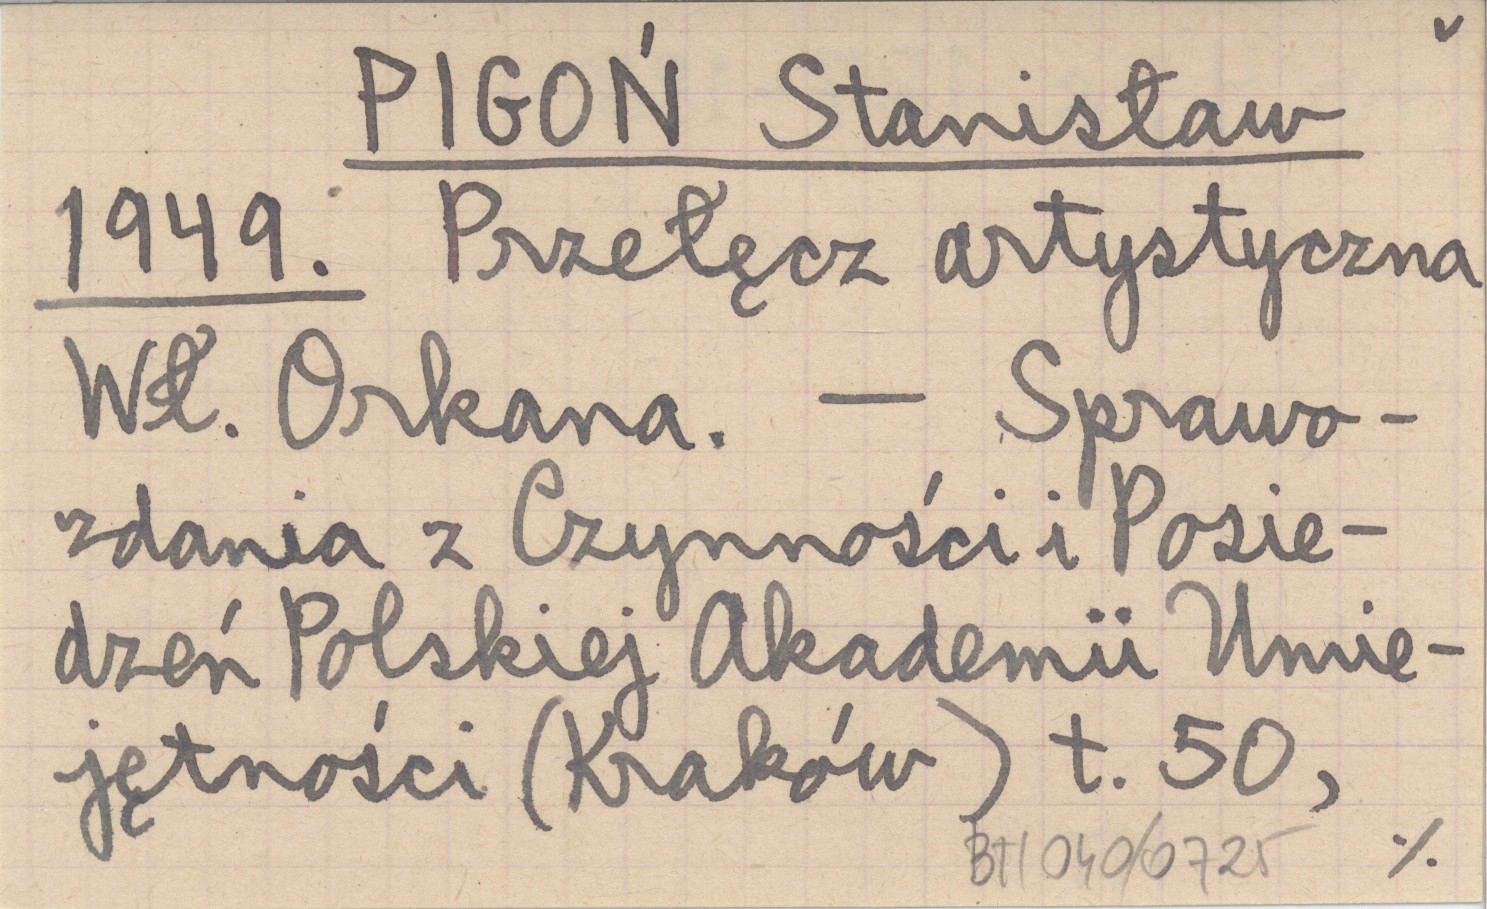 PIGOŃ Stanisław
1949. Przełęcz artystyczna
Wł. Orkana. — Sprawo-
zdania z Czynności i Posie-
dzeń Polskiej Akademii Umie-
jętności (Kraków) t. 50,
BH/040/0725 ./.